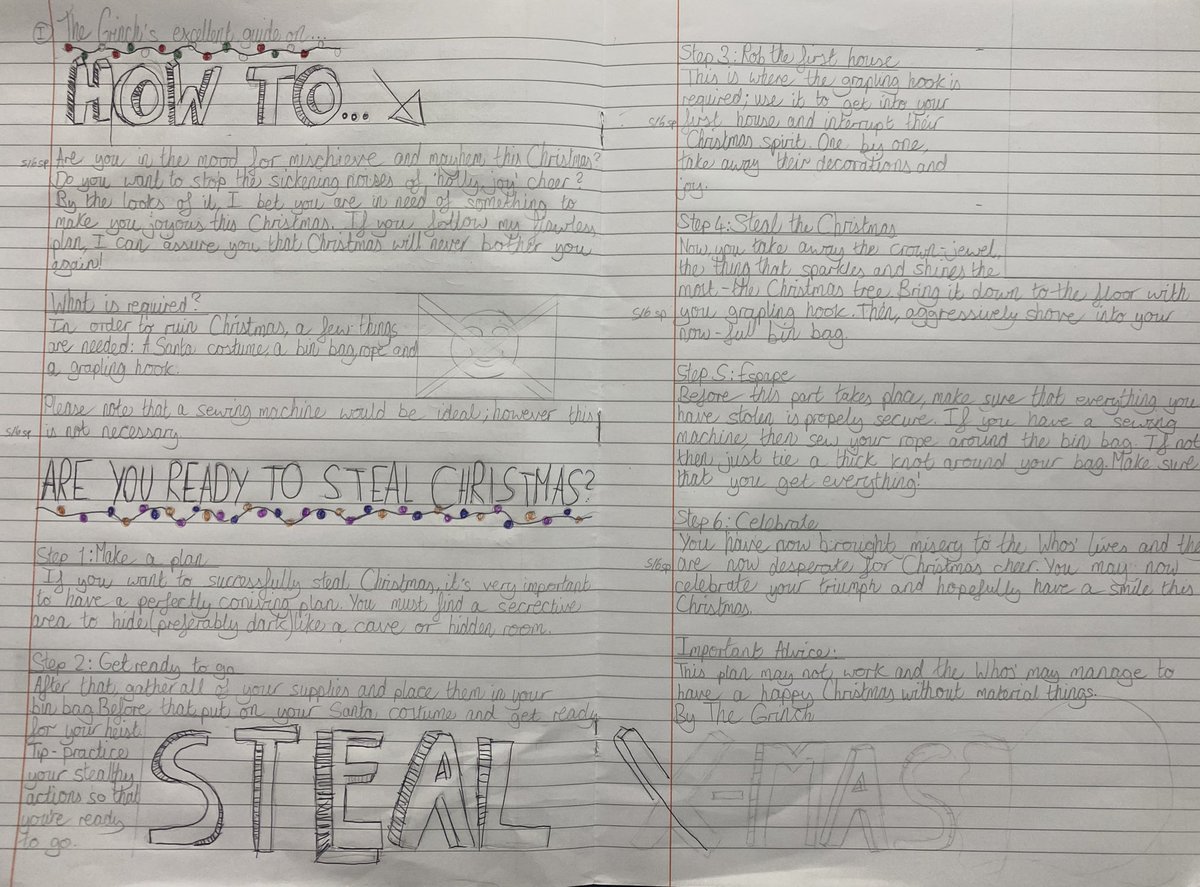 I The Grinch's excellent guide on...
HOW TO...
s/6 sp Are you in the mood for mischieve and mayhem this Christmas?
Do you want to stop the sickening noises of 'holly, joy' cheer?
By the looks of it, I bet you are in need of something to
make you joyous this Christmas. If you follow my flawless
plan, I can assure you that Christmas will never bother you
again!
What is required?
In order to ruin Christmas, a few things
are needed: A Santa costume, a bin bag, rope and
a grapling hook.
Please note that a sewing machine would be ideal; however this
s/6 sp is not necessary.
ARE YOU READY TO STEAL CHRISTMAS?
Step 1: Make a plan
If you want to successfully steal Christmas, it's very important
to have a perfectly coniving plan. You must find a secrective
area to hide (preferably dark) like a cave or hidden room.
Step 2: Get ready to go
After that, gather all of your supplies and place them in your
bin bag. Before that, put on your Santa costume and get ready
for your heist.
Tip- Practice
your stealthy
actions so that
you're ready
to go.
STEAL X-MAS
Step 3: Rob the first house
This is where the grapling hook is
required; use it to get into your
s/6 sp first house and interrupt their
Christmas spirit. One by one,
take away their decorations and
joy.
Step 4: Steal the Christmas
Now you take away the crown-jewel,
the thing that sparkles and shines the
most - the Christmas tree. Bring it down to the floor with
s/6 sp you grapling hook. Then, aggressively shove into your
now-full bin bag.
Step 5: Escape
Before this part takes place, make sure that everything you
have stolen is propely secure. If you have a sewing
machine, then sew your rope around the bin bag. If not
then just tie a thick knot around your bag. Make sure
that you get everything!
Step 6: Celebrate
You have now brought misery to the Whos' lives and the
s/6 sp are now desperate for Christmas cheer. You may now
celebrate your triumph and hopefully have a smile this
Christmas.
Important Advice:
This plan may not work and the Whos' may manage to
have a happy Christmas without material things.
By The Grinch